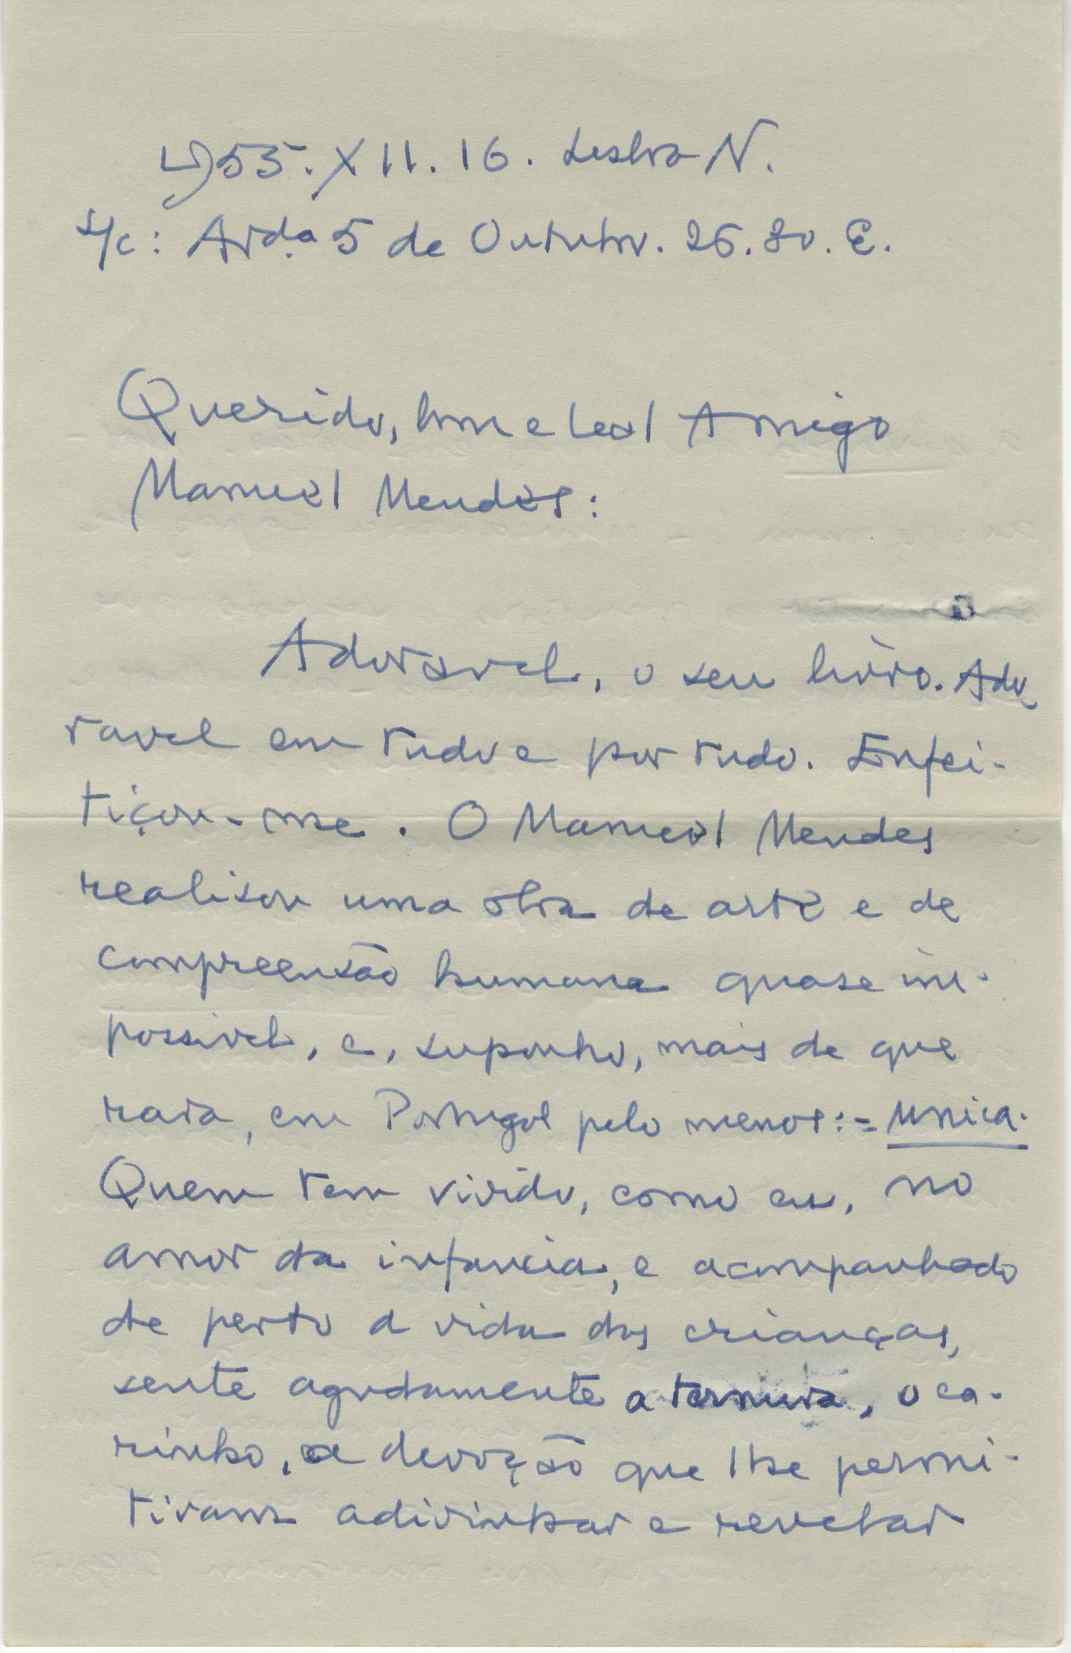 1955.XII.16. Lisboa N.
S/c: Avda 5 de Outubro. 26.8o. E.
Querido, bom e leal Amigo
Manuel Mendes:
Adoravel, o seu livro. Ado
ravel em tudo e por tudo. Enfei-
tiçou-me. O Manuel Mendes
realisou uma obra de arte e de
compreensão humana quase im-
possivel, e, suponho, mais de que
rara, em Portugal pelo menos:- unica.
Quem tem vivido, como eu, no
amor da infancia, e acompanhado
de perto a vida das crianças,
sente agudamente a ternura, o ca-
rinho, a devoção que lhe permi-
tiram adivinhar e revelar